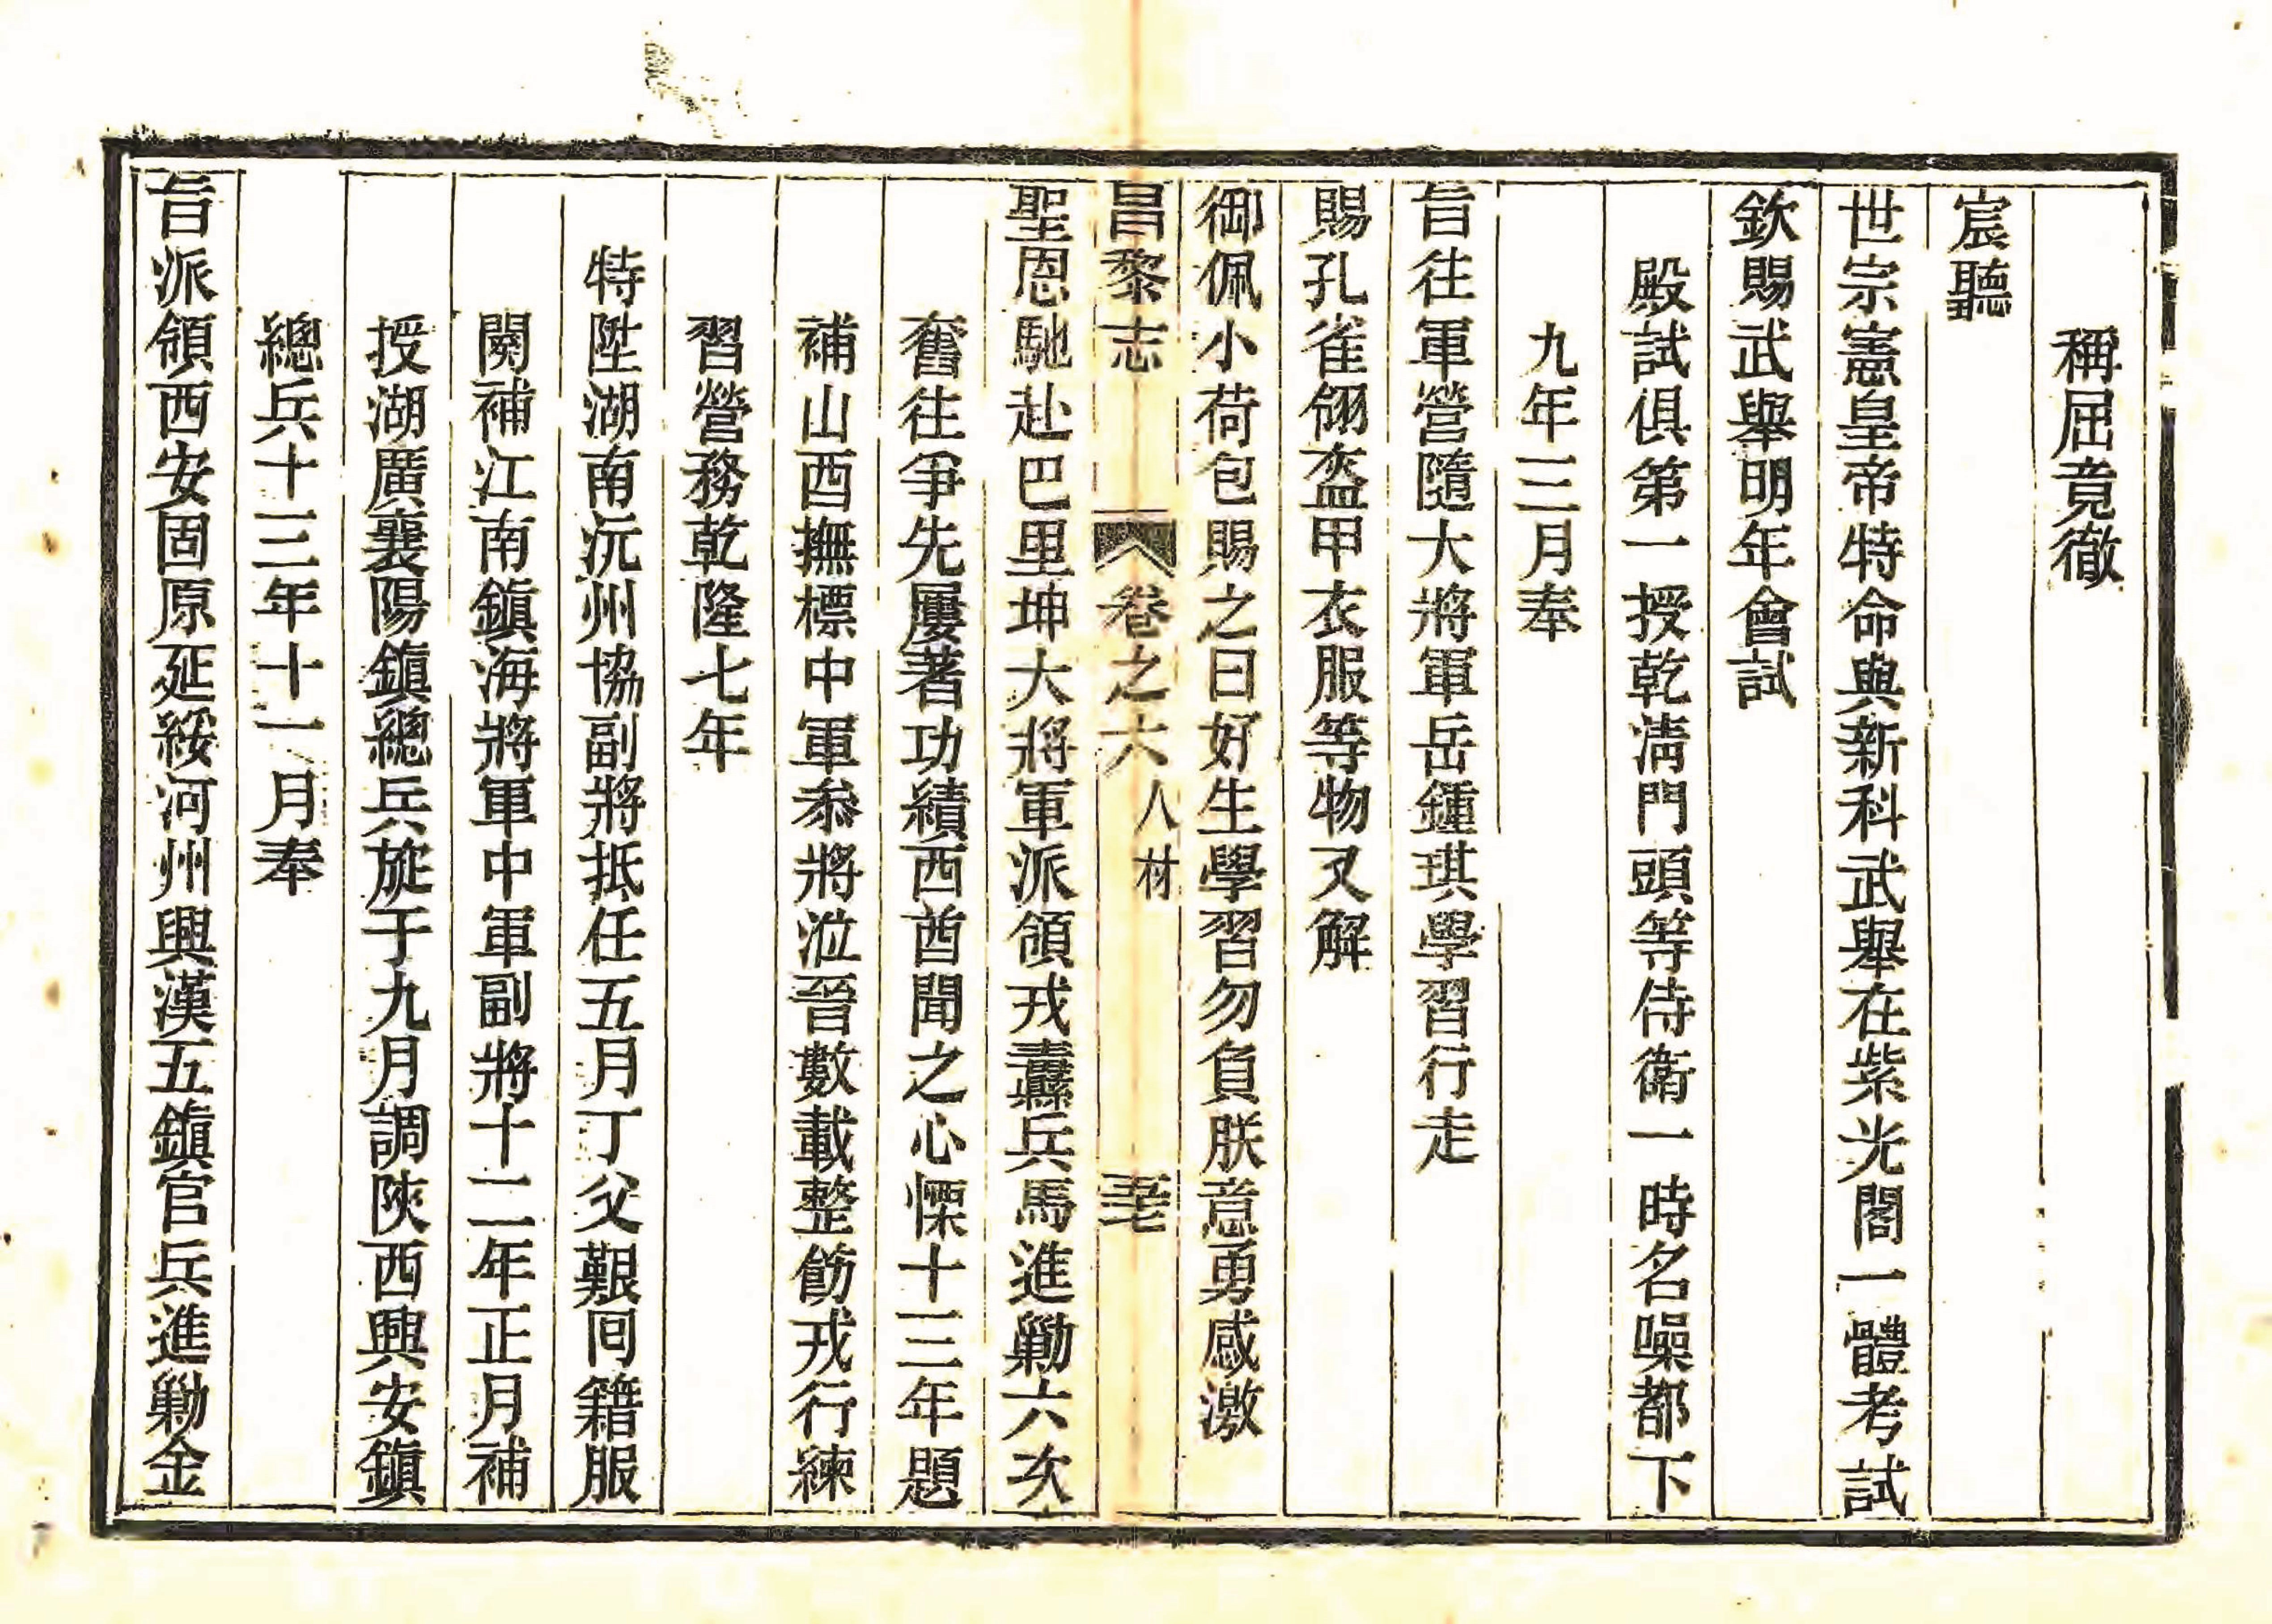 稱屈竟徹
宸聽
世宗憲皇帝特命典新科武舉在紫光閣一體考試
欽賜武舉明年會試
殿試俱第一授乾淸門頭等侍衛一時名噪都下
九年三月奉
旨往軍營隨大將軍岳鍾琪學習行走
賜孔雀翎盔甲衣服等物又解
御佩小荷包賜之曰好生學習勿負朕意勇感激
昌黎志
卷之六
人材
聖恩馳赴巴里坤大將軍派領戎纛兵馬進勦六次
奮往爭先屢著功績西酋聞之心慄十三年題
補山西撫標中軍叅將涖晉數載整飭戎行練
習營務乾隆七年
特陞湖南沅州協副將抵任五月丁父艱囘籍服
闋補江南鎭海將軍中軍副將十二年正月補
授湖廣襄陽鎭總兵旋于九月調陝西興安鎭
總兵十三年十一月奉
旨派領西安固原延綏河州興漢五鎭官兵進勦金